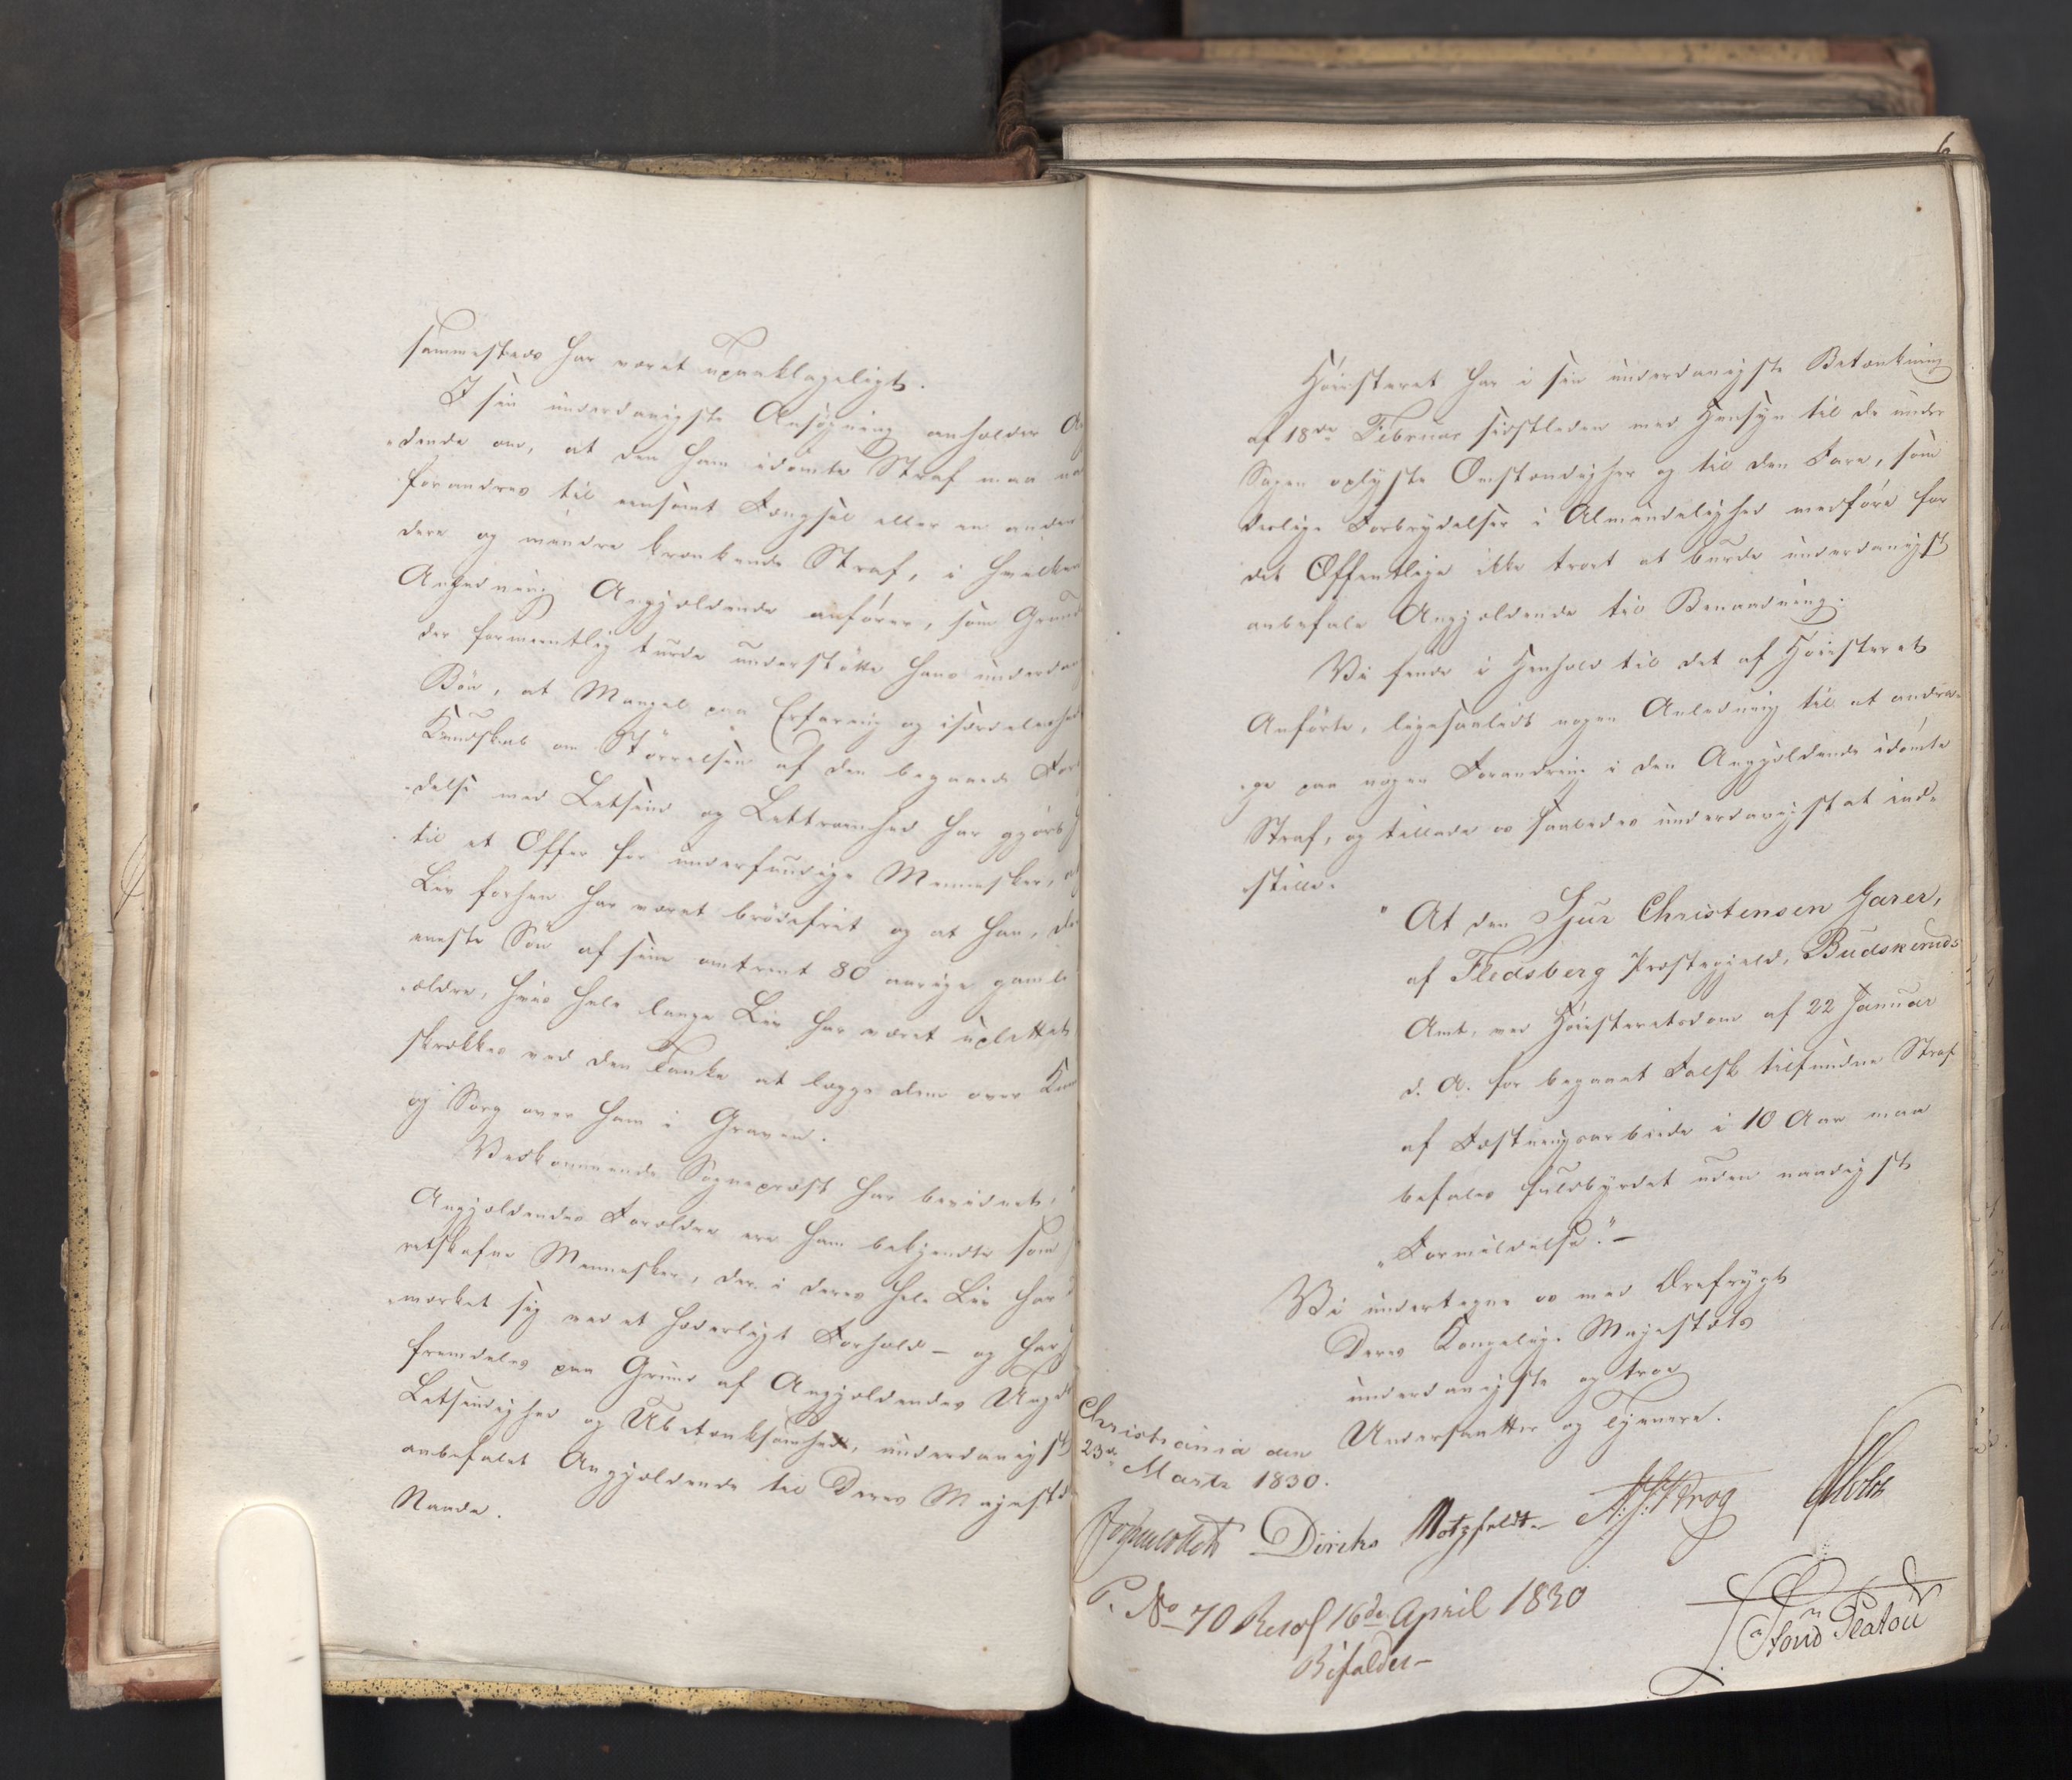 sammesteds har været upaaklageligt.
I sin underdanigste Ansøgning anholder An
-dende om, at den ham idømte Straf maa
forandres til eensomt Fængsel eller en anden
dere og mindre krænkende Straf, i hvilken
Anledning Angjældende anfører, som Grunde
der formeentlig turde understøtte hans underda
Bön, at Mangel paa Erfaring og isærdeleshed
Kundskab om Störrelsen af den begaaede For
-delse med Letsind og Lettroenhed har gjort
til et Offer for underfundige Mennesker, at
Liv forhen har været brødefrit og at han, den
eneste Sön af sine omtrent 80 aarige gamle
-ældre, hvis hele lange Liv har været uplettet
skrækkes ved den Tanke at lægge dem over
og Sorg over ham i Graven.
Vedkommende Sognepræst har bevidnet,
Angjældendes Forældre ere ham bekjendte som
retskafne Mennesker, der i deres hele Liv har
-mærket sig ved et hæderligt Forhold – og har
fremdeles paa Grund af Angjældendes Ungd
Letsindighed og Ubetænksomhed, underdanigst
anbefalet Angjældende til Deres Majestæ
Naade.
Höiesteret har i sin underdanigste Betænkning
af 18de Februar sidstleden med Hensyn til de under
Sagen oplyste Omstændigheder og til den Fare, som
deslige Forbrydelser i Almindelighed medføre for
det Offentlige ikke troet at burde underdanigst
anbefale Angjældende til Benaadning.
Vi finde i Henhold til det af Höiesteret
Anførte, ligesaalidt nogen Anledning til at andra-
-ge paa nogen Forandring i den Angjældende idømte
Straf, og tillade os saaledes underdanigst at ind-
-stille.
"At den Sjur Christensen Garer,
af Fledsberg Præstegjeld, Budskeruds
Amt, ved Höiesteretsdom af 22 Januar
d. A. for begaaet Falsk tilfundne Straf
af Fæstningsarbeide i 10 Aar maa
befales fuldbyrdet uden naadigst
"Formildelse." –
Vi undertegne os med Ærefrygt
Deres Kongelige Majestæts
underdanigste og troe
Undersaatter og Tjenere.
Christiania den
23de Marts 1830.
Diriks Motzfeldt A. J. Krog Holst
P. No 70 Resol 16de April 1830
Bifaldes –
Platou